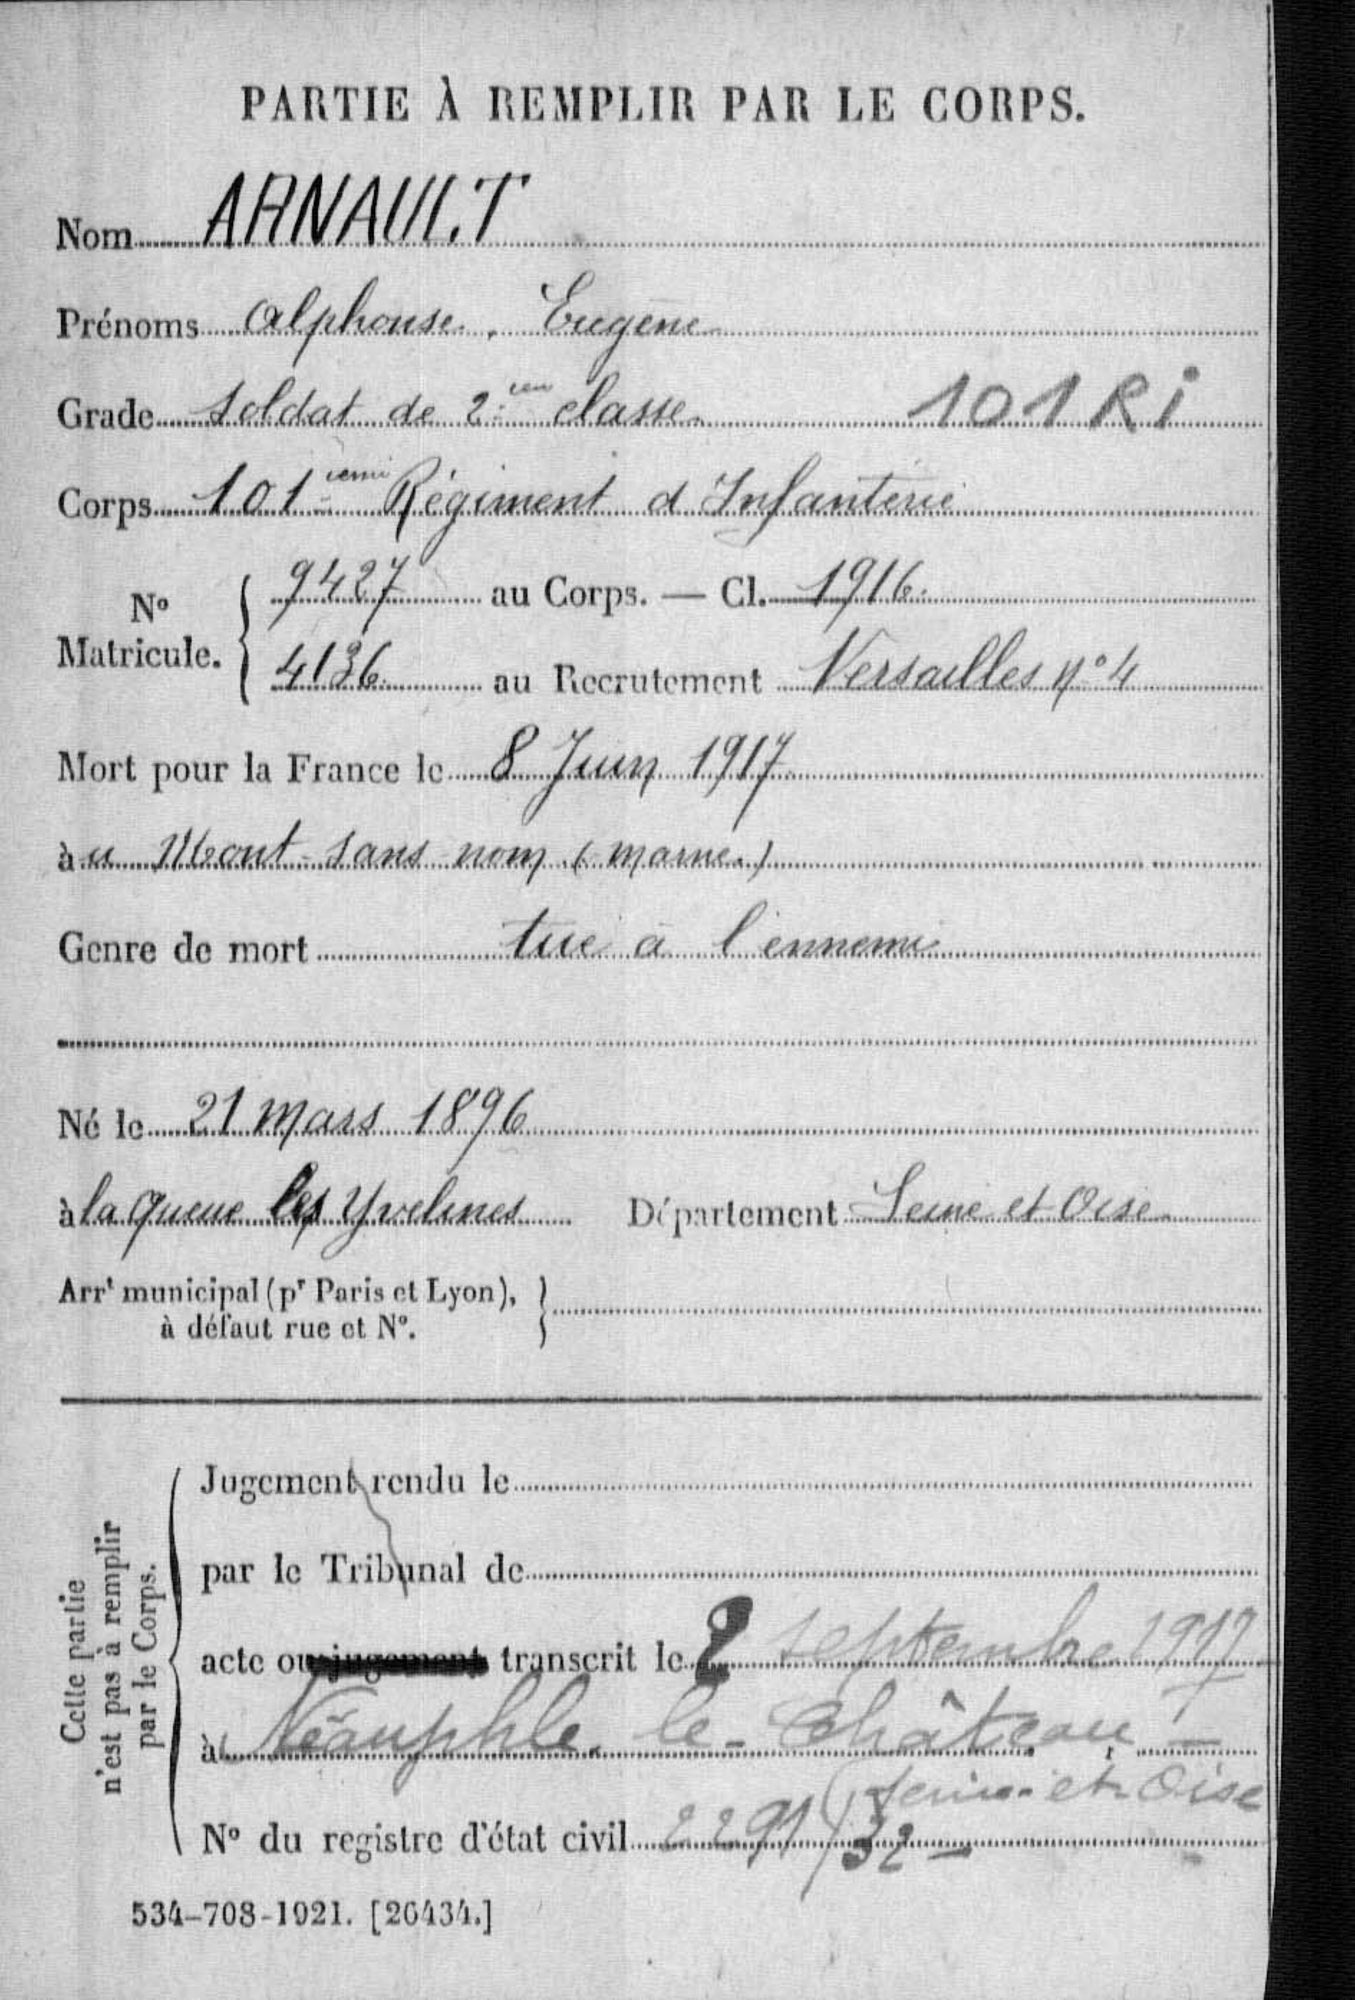 PARTIE À REMPLIR PAR LE CORPS.
Nom ARNAULT
Prénoms Alphonse, Eugène
Grade Soldat de 2ième classe 101 RI
Corps 101ième Régiment d Infanterie
No Matricule. { 9427 au Corps. — Cl. 1916.
4136 au Recrutement Versailles no 4
Mort pour la France le 8 Juin 1917
à u Mont-sans-nom (Marne.)
Genre de mort tué à l'ennemi
Né le 21 mars 1896
à la queue les Yvelines Département Seine et Oise
Arrt municipal (pr Paris et Lyon), à défaut rue et No.
Cette partie n'est pas à remplir par le Corps.
Jugement rendu le
par le Tribunal de
acte ou jugement transcrit le 2 septembre 1917
à Néauphle-le-Château -
Seine-et-Oise
No du registre d'état civil 2291/32 -
534-708-1921. [26434.]